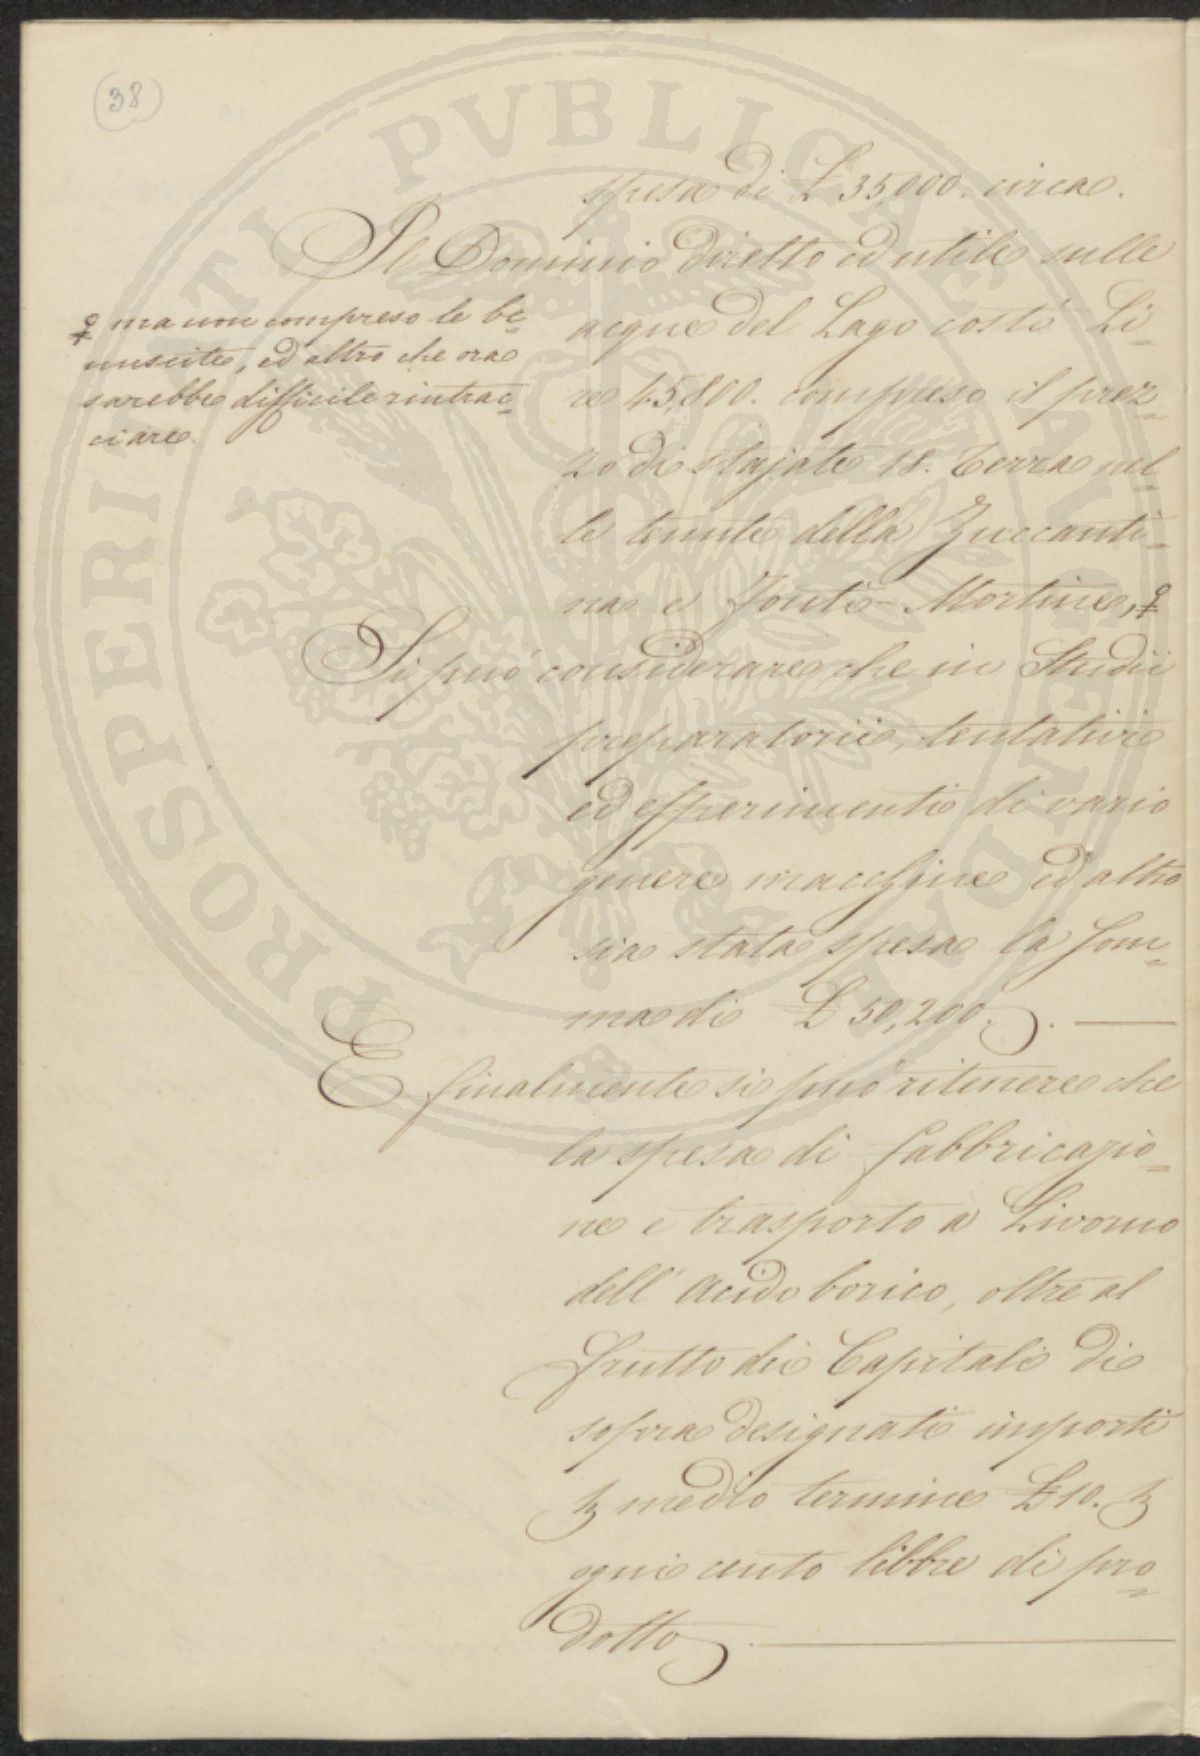 (38)
spesa di £ 35,000. circa.
Il Dominio diretto ed utile sulle
acque del Lago costò Li=
re 45,800. compreso il prez=
zo di stajate 18. Terra nel=
le tenute della Zuccanti=
na e Fonti Mortine, ♀
♀ ma non compreso le be=
nuscite, ed altro che ora
sarebbe difficile rintrac=
ciare.
Si può considerare che in Studii
preparatorii, tentativi
ed esperimenti di vario
genere macchine ed altro
sia stata spesa la som=
ma di £ 50,200.
E finalmente si può ritenere che
la spesa di fabbricazio=
ne e trasporto a Livorno
dell' Acido borico, oltre al
frutto dei Capitali di
sopra designati importi
medio termine £ 10.
ogni cento libbre di pro=
dotto.
PROSPERITATI PVBLICAE AVGENDAE